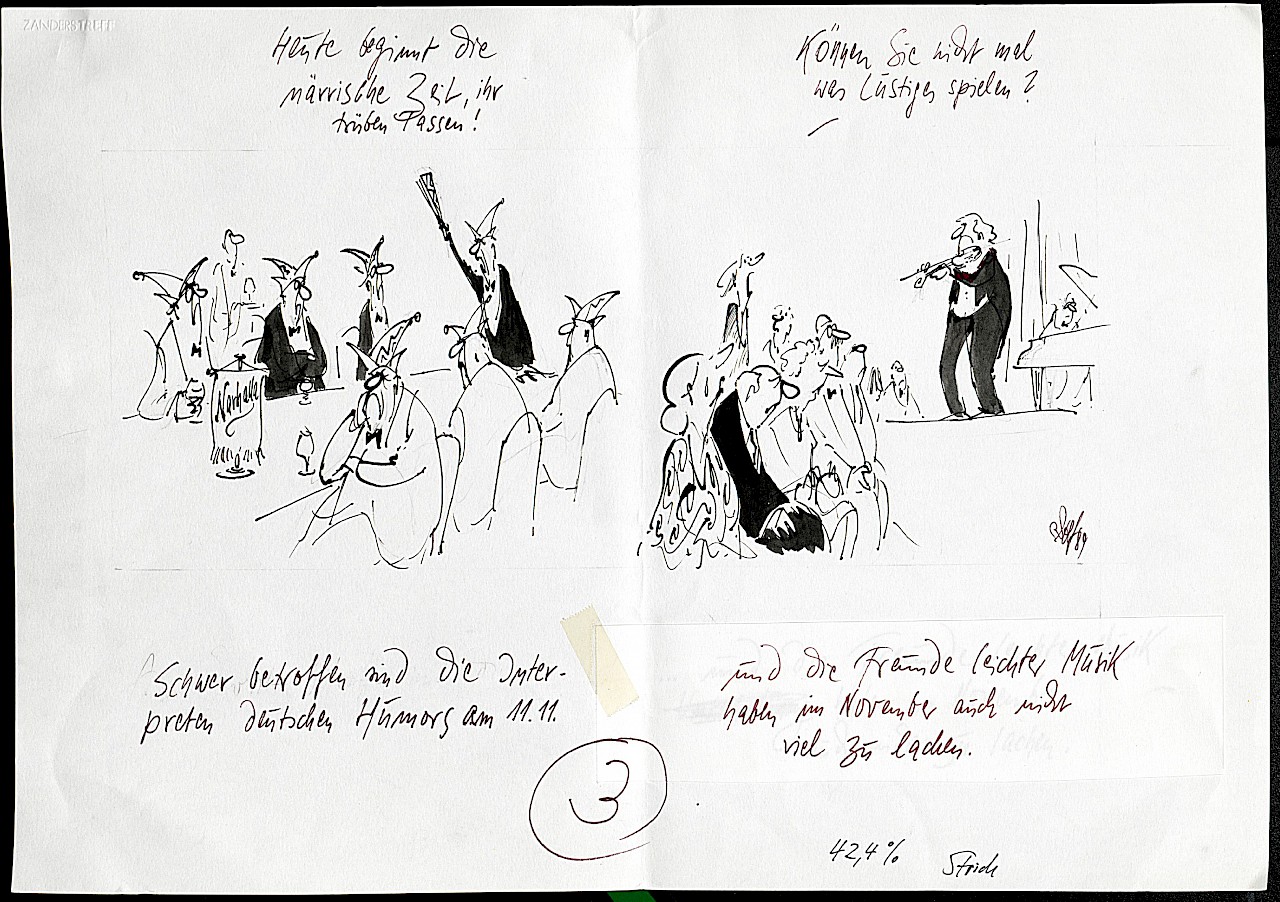 ZANDERSTREFF
Heute beginnt die
närrische Zeit, ihr
trüben Tassen!
Können Sie nicht mal
was Lustiges spielen?
Narhalla
89
Schwer betroffen sind die Inter-
preten deutschen Humors am 11.11.
und die Freunde leichter Musik
haben im November auch nicht
viel zu lachen.
3
42,4%
Strich